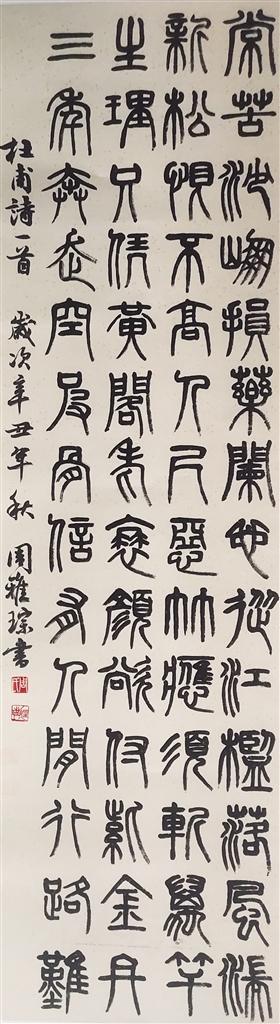 常苦沙崩損藥闌也從江檻落風湍
新松恨不高千尺惡竹應須斬萬竿
生理只憑黃閣老衰顏欲付紫金丹
三年奔走空皮骨信有人間行路難
杜甫詩一首 歲次辛丑年秋 周雅琮書